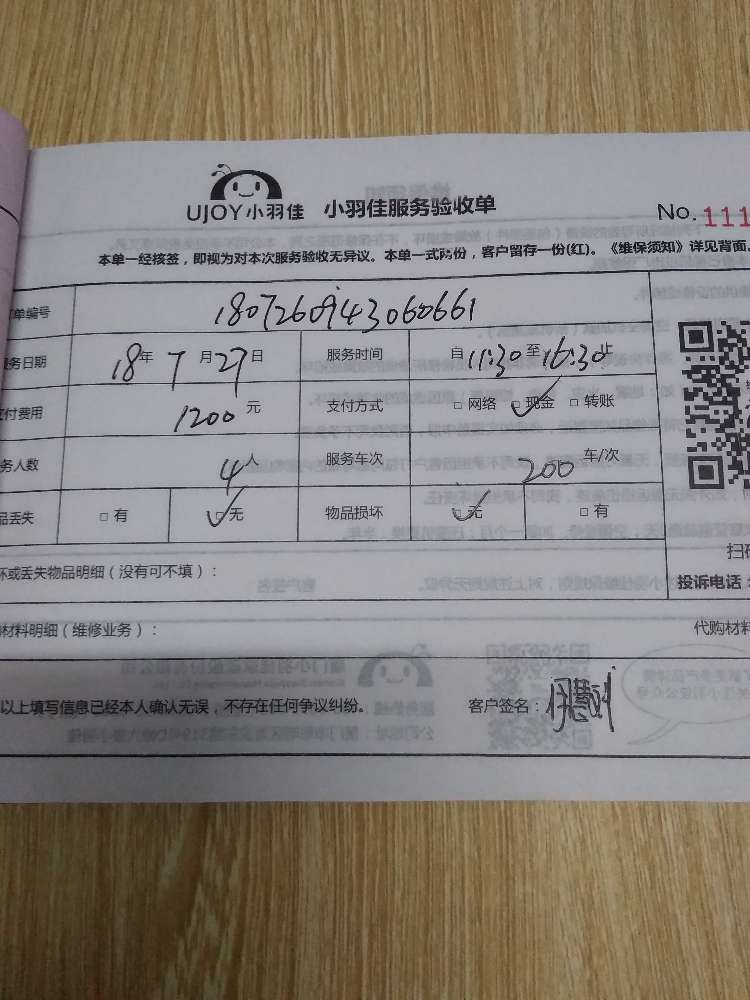 UJOY小羽佳 小羽佳服务验收单 No.111
本单一经核签，即视为对本次服务验收无异议。本单一式两份，客户留存一份(红)。《维保须知》详见背面。
单编号 1807260943060661
务日期 18年7月27日 服务时间 自11:30至16:30止
付费用 1200元 支付方式 □网络 ☑现金 □转账
务人数 4人 服务车次 200车/次
品丢失 □有 ☑无 物品损坏 ☑无 □有
扫码
坏或丢失物品明细（没有可不填）： 投诉电话：
材料明细（维修业务）： 代购材料
以上填写信息已经本人确认无误，不存在任何争议纠纷。 客户签名：